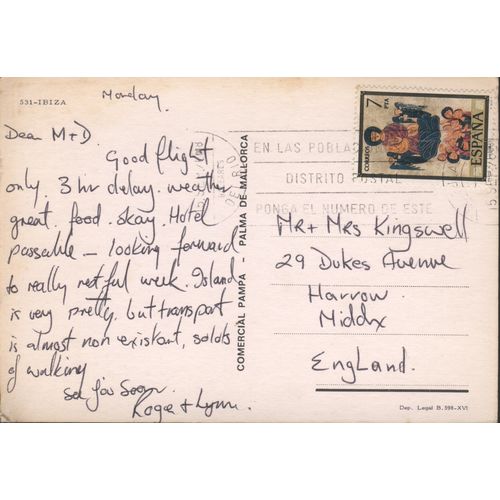 531-IBIZA
Monday
Dear M+D
Good flight
only 3 hr delay. weather
great. food. okay. Hotel
passable - looking forward
to really restful week. Island
is very pretty, but transport
is almost non existant, so lots
of walking
see you soon.
Roger + Lynn.
COMERCIAL PAMPA - PALMA DE MALLORCA
EN LAS POBLAC
DISTRITO POSTAL
PONGA EL NUMERO DE ESTE
7
PTA
CORREOS
ESPAÑA
Mr + Mrs Kingswell
29 Dukes Avenue
Harrow.
Middx
England.
Dep. Legal B. 598-XVI